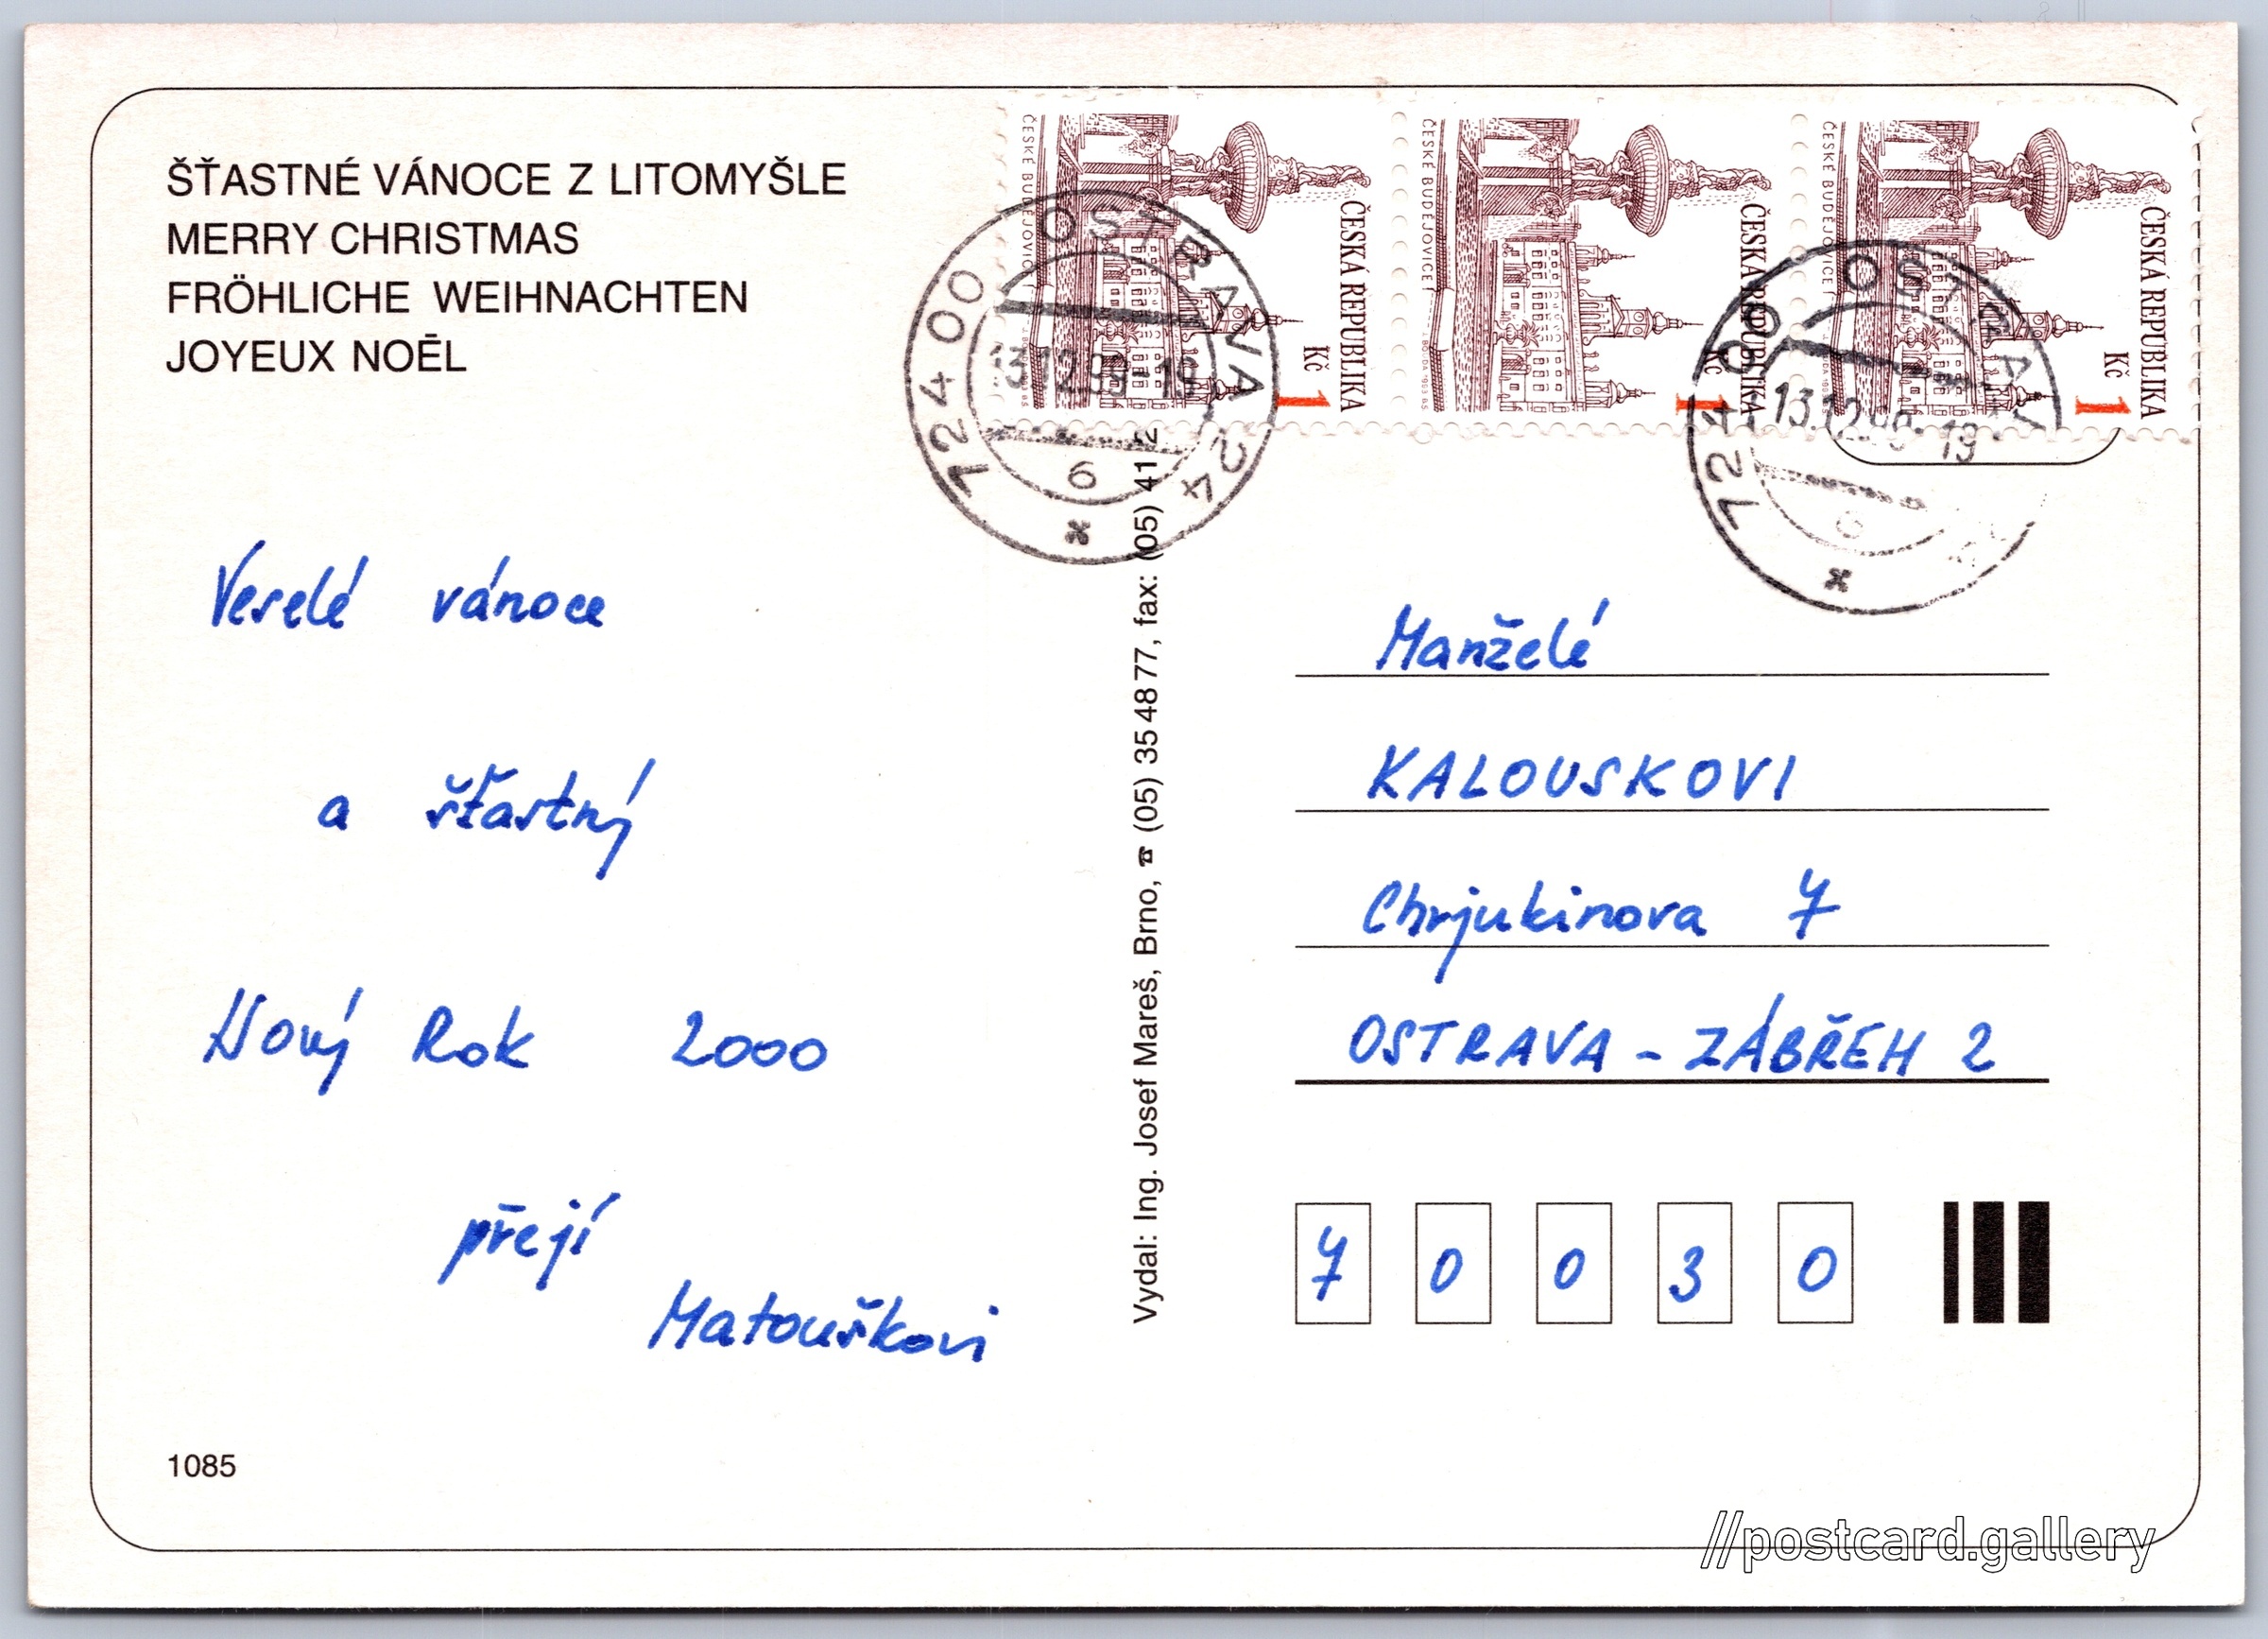 ŠŤASTNÉ VÁNOCE Z LITOMYŠLE
MERRY CHRISTMAS
FRÖHLICHE WEIHNACHTEN
JOYEUX NOĒL
Veselé vánoce
a šťastný
Nový Rok 2000
přejí
Matouškovi
1085
Vydal: Ing. Josef Mareš, Brno, ☎ (05) 35 48 77, fax: (05) 41 2
ČESKÁ REPUBLIKA
1 Kč
ČESKÉ BUDĚJOVICE
ČESKÁ REPUBLIKA
1 Kč
ČESKÉ BUDĚJOVICE
ČESKÁ REPUBLIKA
1 Kč
ČESKÉ BUDĚJOVICE
724 00 OSTRAVA 24
13.12.99-19
6
724 00 OSTRAV
13.12.99-19
6
Manželé
KALOUSKOVI
Chrjukinova 7
OSTRAVA - ZÁBŘEH 2
7 0 0 3 0
//postcard.gallery